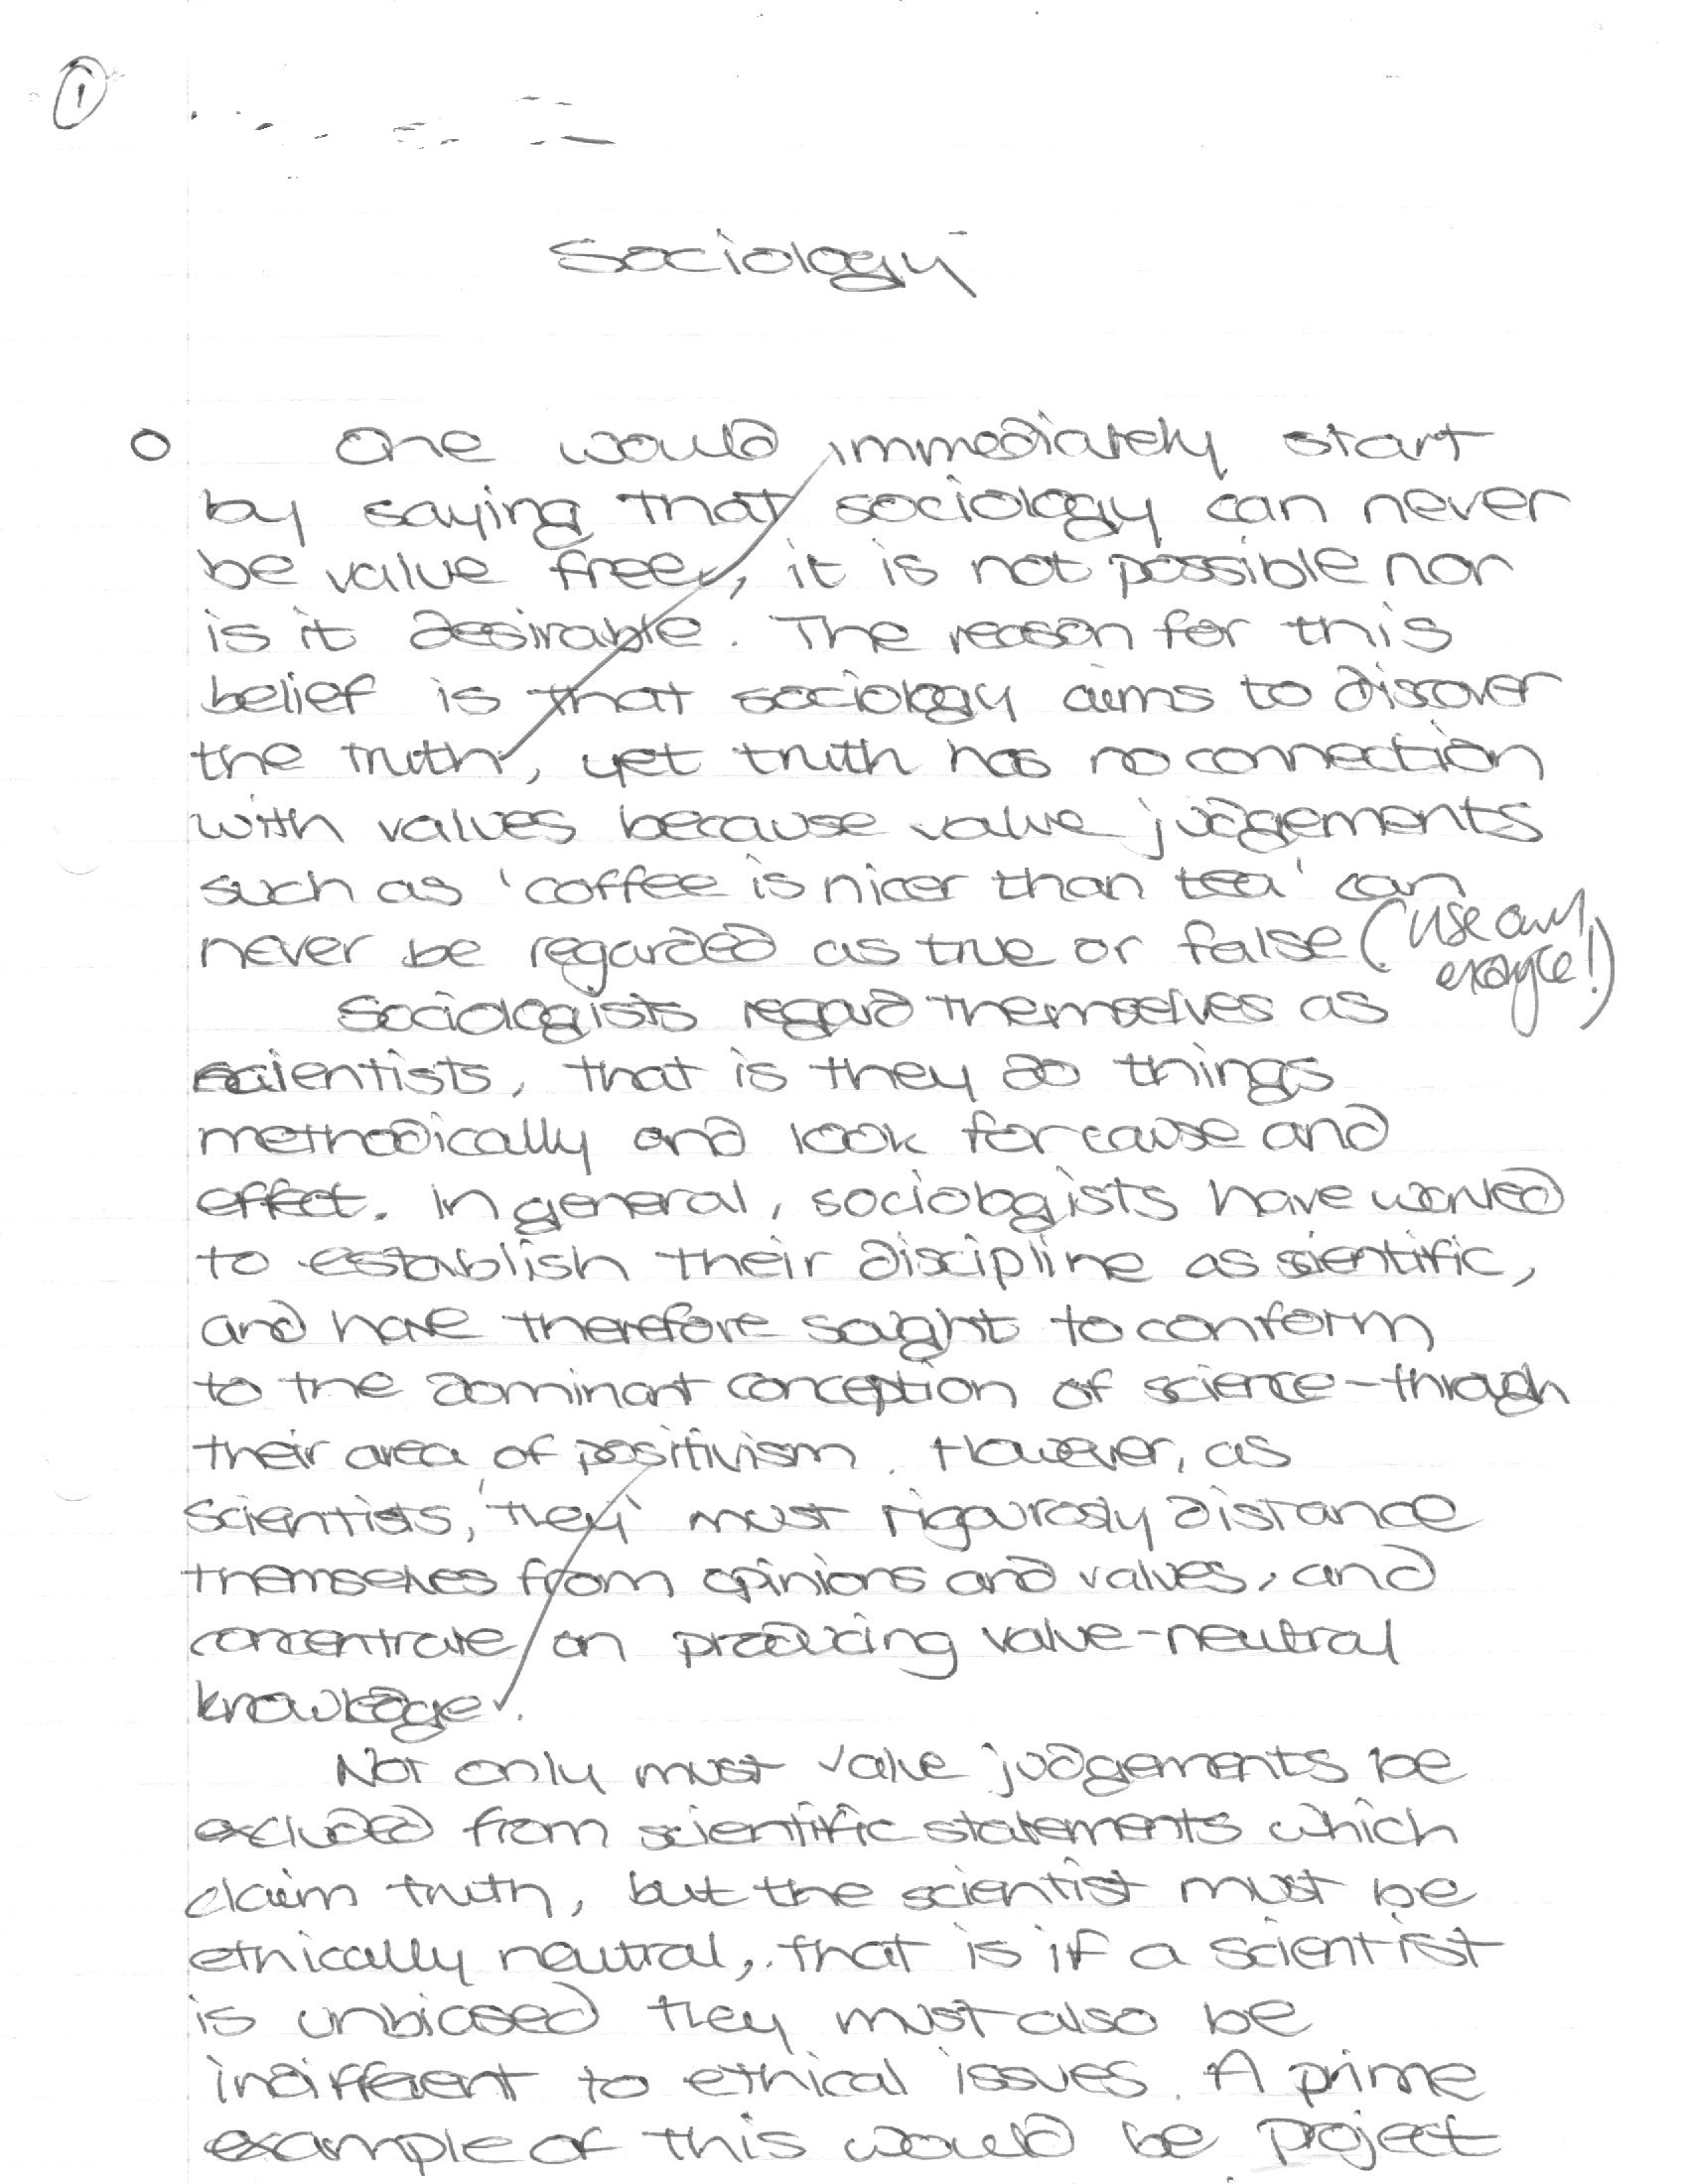 1
Sociology
One would immediately start
by saying that sociology can never
be value free, it is not possible nor
is it desirable. The reason for this
belief is that sociology aims to discover
the truth, yet truth has no connection
with values because value judgements
such as 'coffee is nicer than tea' can
never be regarded as true or false (use any
example!)
Sociologists regard themselves as
scientists, that is they do things
methodically and look for cause and
effect. In general, sociologists have wanted
to establish their discipline as scientific,
and have therefore sought to conform
to the dominant conception of science - through
their area of positivism. However, as
scientists, 'they' must rigourosly distance
themselves from opinions and values, and
concentrate on producing value-neutral
knowledge.
Not only must value judgements be
excluded from scientific statements which
claim truth, but the scientist must be
ethically neutral, that is if a scientist
is unbiased they must also be
indifferent to ethical issues. A prime
example of this would be project